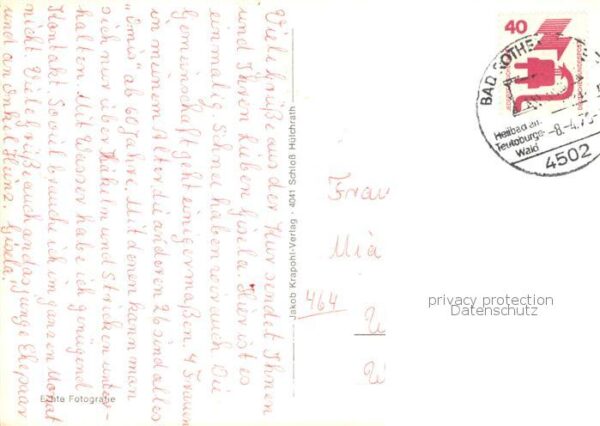 Viele Grüße aus der Kur sendet Ihnen
und Ihren Lieben Gisela. Hier ist es
einmalig. Schnee haben wir auch. Die
Gemeinschaft geht einigermaßen. 4 Frauen
in meinem Alter, die anderen 26 sind alles
"Omis" ab 60 Jahre. Mit denen kann man
sich nur über Häkeln und Stricken unter-
halten. Mit Wasser habe ich genügend
Kontakt. Soviel brauche ich im ganzen Monat
nicht. Viele Grüße auch an das junge Ehepaar
und an Onkel Heinz. Gisela.
Echte Fotografie
Jakob Krapohl-Verlag · 4041 Schloß Hülchrath
40
BAD ROTHE
Heilbad im
Teutoburger
Wald
-8.-4.75-
4502
Frau
Mia
464
privacy protection
Datenschutz